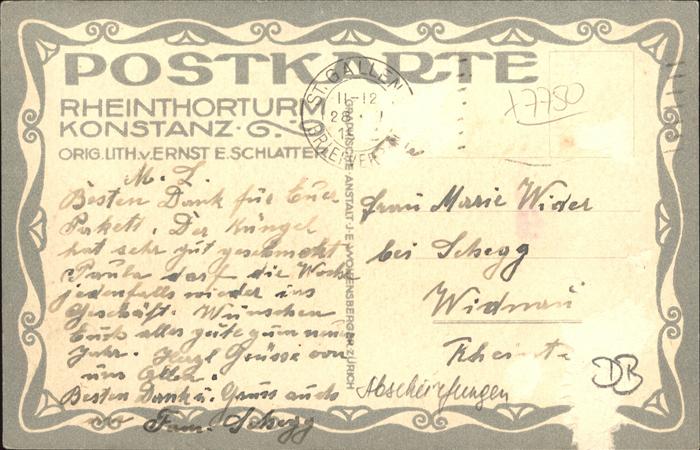 POSTKARTE
RHEINTHORTURM
KONSTANZ
ORIG. LITH. v. ERNST E. SCHLATTER
ST. GALLEN
11-12
GRAPHISCHE ANSTALT J.E. WOLFENSBERGER, ZÜRICH
+7750
M. L.
Besten Dank für Euer
Pakett. Der Küngel
hat sehr gut geschmekt
Paula darf die Woche
jedenfalls wieder ins
Geschäft. Wünschen
Euch alles gute zum neuen
Jahr. Herzl Grüsse von
uns Allen.
Besten Dank u. Gruss auch
Fam. Schegg
Frau Marie Wider
bei Schegg
Widnau
Rheint
Abschürfungen
DB